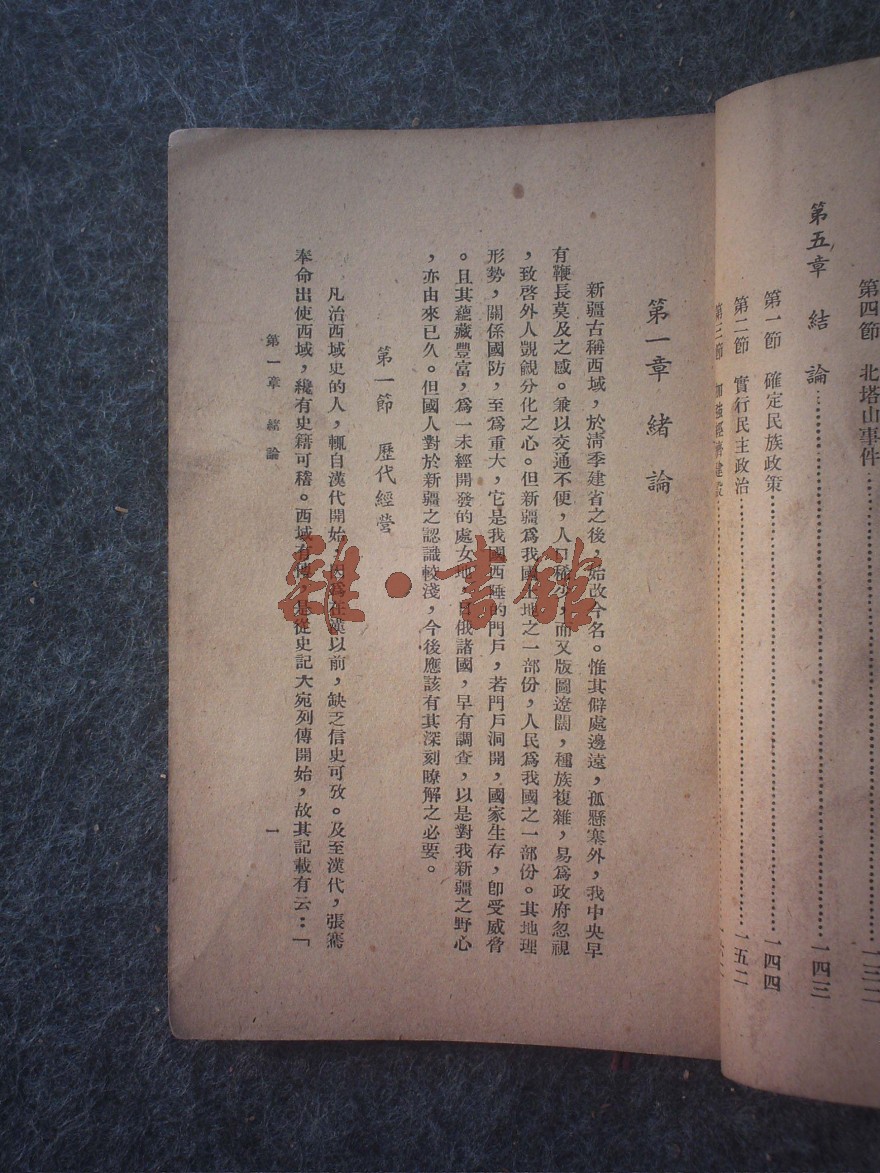 第四節　北塔山事件…………一三二
第五章　結　論…………一四三
第一節　確定民族政策…………一四四
第二節　實行民主政治…………一五二
第三節　加強經濟建設…………
第一章　緒　論
新疆古稱西域，於清季建省之後，始改今名。惟其僻處邊遠，孤懸塞外，我中央早
有鞭長莫及之感。兼以交通不便，人口稀少，而又版圖遼闊，種族複雜，易爲政府忽視
，致啓外人覬覦分化之心。但新疆爲我國土地之一部份，人民爲我國之一部份。其地理
形勢，關係國防，至爲重大，它是我國西陲的門戶，若門戶洞開，國家生存，卽受威脅
。且其蘊藏豐富，爲一未經開發的處女地，日俄諸國，早有調查，以是對我新疆之野心
，亦由來已久。但國人對於新疆之認識較淺，今後應該有其深刻瞭解之必要。
第一節　歷代經營
凡治西域史的人，輒自漢代開始，因爲在漢以前，缺乏信史可攷。及至漢代，張騫
奉命出使西域，纔有史籍可稽。西域有傳，是從史記大宛列傳開始，故其記載有云：「
第一章　緒　論
一
雜·書館